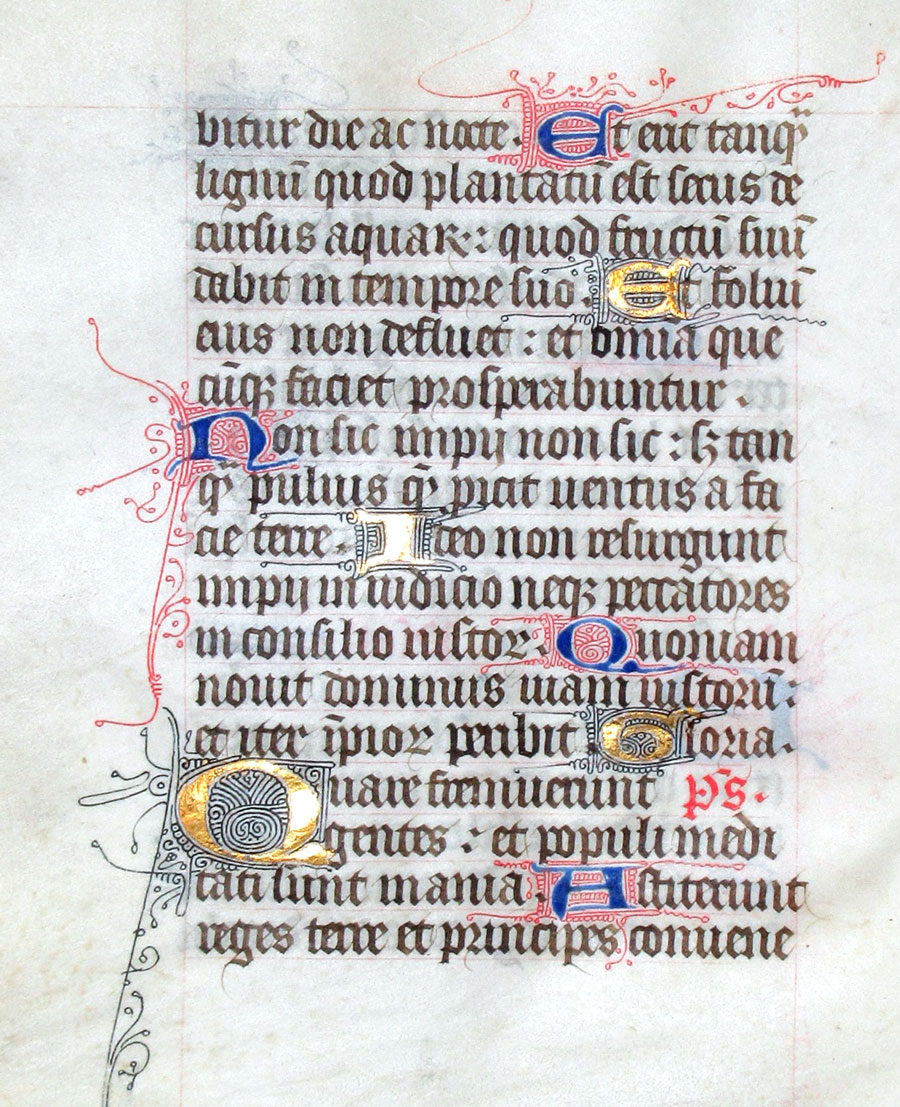 bitur die ac nocte. Et erit tanqᷓ
lignū quod plantatū est secus de
cursus aquaꝝ: quod fructū suū
dabit in tempore suo. Et foliū
eius non defluet: et omnia que
cūqꝫ faciet prosperabuntur.
Non sic impij non sic: sꝫ tan
qᷓ puluis qᷓ picit uentus a fa
cie terre. Ideo non resurgunt
impij in iudicio neqꝫ peccatores
in consilio iustoꝝ. Quoniam
nouit dominus uiam iustorū:
et iter īpioꝝ peribit. Gloria.
Quare fremuerunt ps̄.
gentes: et populi medi
tati sunt inania. Astiterunt
reges terre et principes conuene